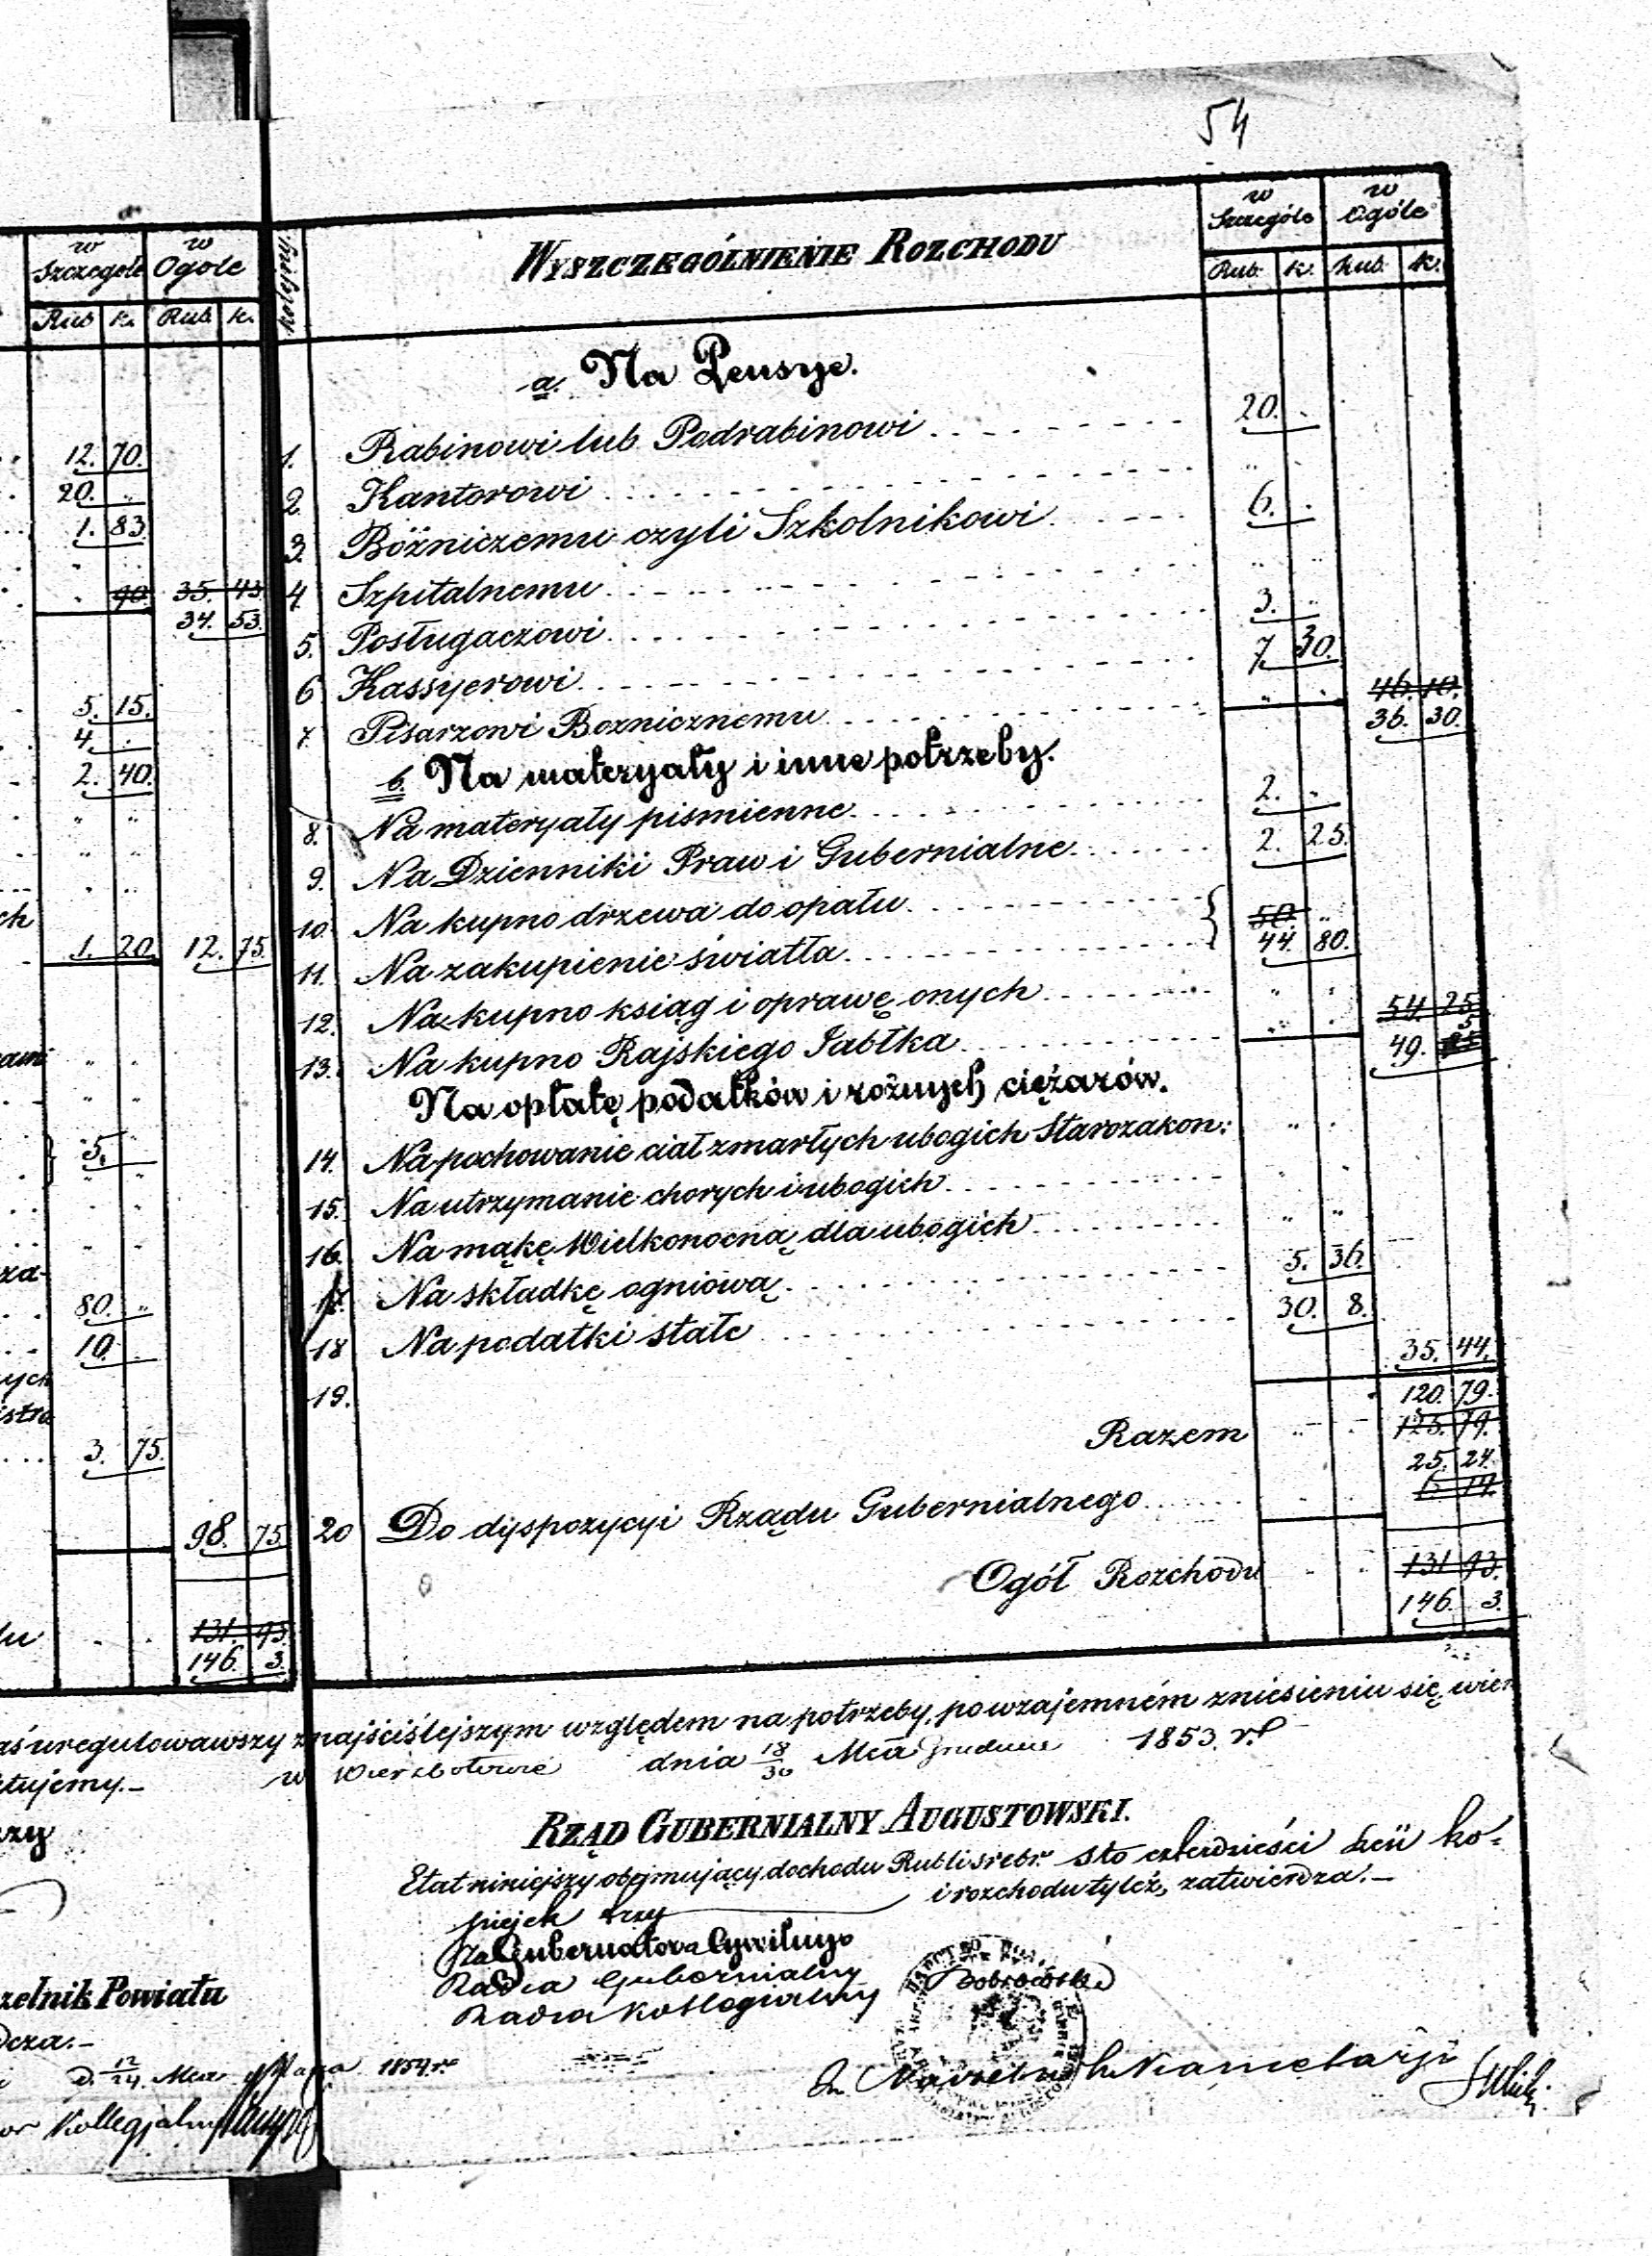 54
w Szczególe w Ogóle
Rub k. Rub. k.
12. 70.
20. „
1. 83.
90. 35. 43
34. 53.
5. 15.
4. .
2. 40.
ch
1. 20. 12. 75.
5.
za-
80. „
10. .
ych
3. 75.
98. 75.
131. 93.
146. 3.
kolejny
WYSZCZEGÓLNIENIE ROZCHODU
w Szczególe w Ogóle
Rub. k. Rub. k.
a. Na Pensye.
1. Rabinowi lub Podrabinowi 20. .
2. Kantorowi „ .
3. Bóżniczemu czyli Szkolnikowi 6. .
4. Szpitalnemu „ „
5. Posługaczowi 3. „
6 Kassyerowi 7 30.
7. Pisarzowi Boznicznemu „ . 46. 10.
36. 30.
b. Na materyały i inne potrzeby.
8. Na materyały pismienne 2. „
9. Na Dzienniki Praw i Gubernialne 2. 25.
10. Na kupno drzewa do opału 50. „
11. Na zakupienie światła 44. 80.
12. Na kupno ksiąg i oprawę onych „ .
13. Na kupno Rajskiego Jabłka „ . 54. 25.
49. 5.
Na opłatę podatków i rożnych ciężarów.
14. Na pochowanie ciał zmarłych ubogich Starozakon: „ .
15. Na utrzymanie chorych i ubogich „ .
16. Na mąkę Wielkonocną dla ubogich „ „
17. Na składkę ogniową 5. 36.
18 Na podatki stałe 30. 8.
35. 44.
19.
120. 79.
Razem „ . 125. 79.
25. 24.
6 14.
20 Do dyspozycyi Rządu Gubernialnego
Ogół Rozchodu „ „ 131 93.
146. 3.
aś uregulowawszy z najściślejszym względem na potrzeby, po wzajemném zniesieniu się, wier
tujemy.– w Wierzbołowie dnia 18/30 Mca Grudnia 1853 r.
RZĄD GUBERNIALNY AUGUSTOWSKI.
Etat niniejszy obejmujący dochodu Rubli srebr. sto czterdzieści sześć ko-
piejek trzy i rozchodu tyleż, zatwierdza.–
Za Gubernatora Cywilnego
Radca Gubernialny
Radca Kollegialny
zelnik Powiatu
dcza.–
d. 12/24. Mca Maja 1854 r.
or Kollegjalny
Naczelnik Kancelarji